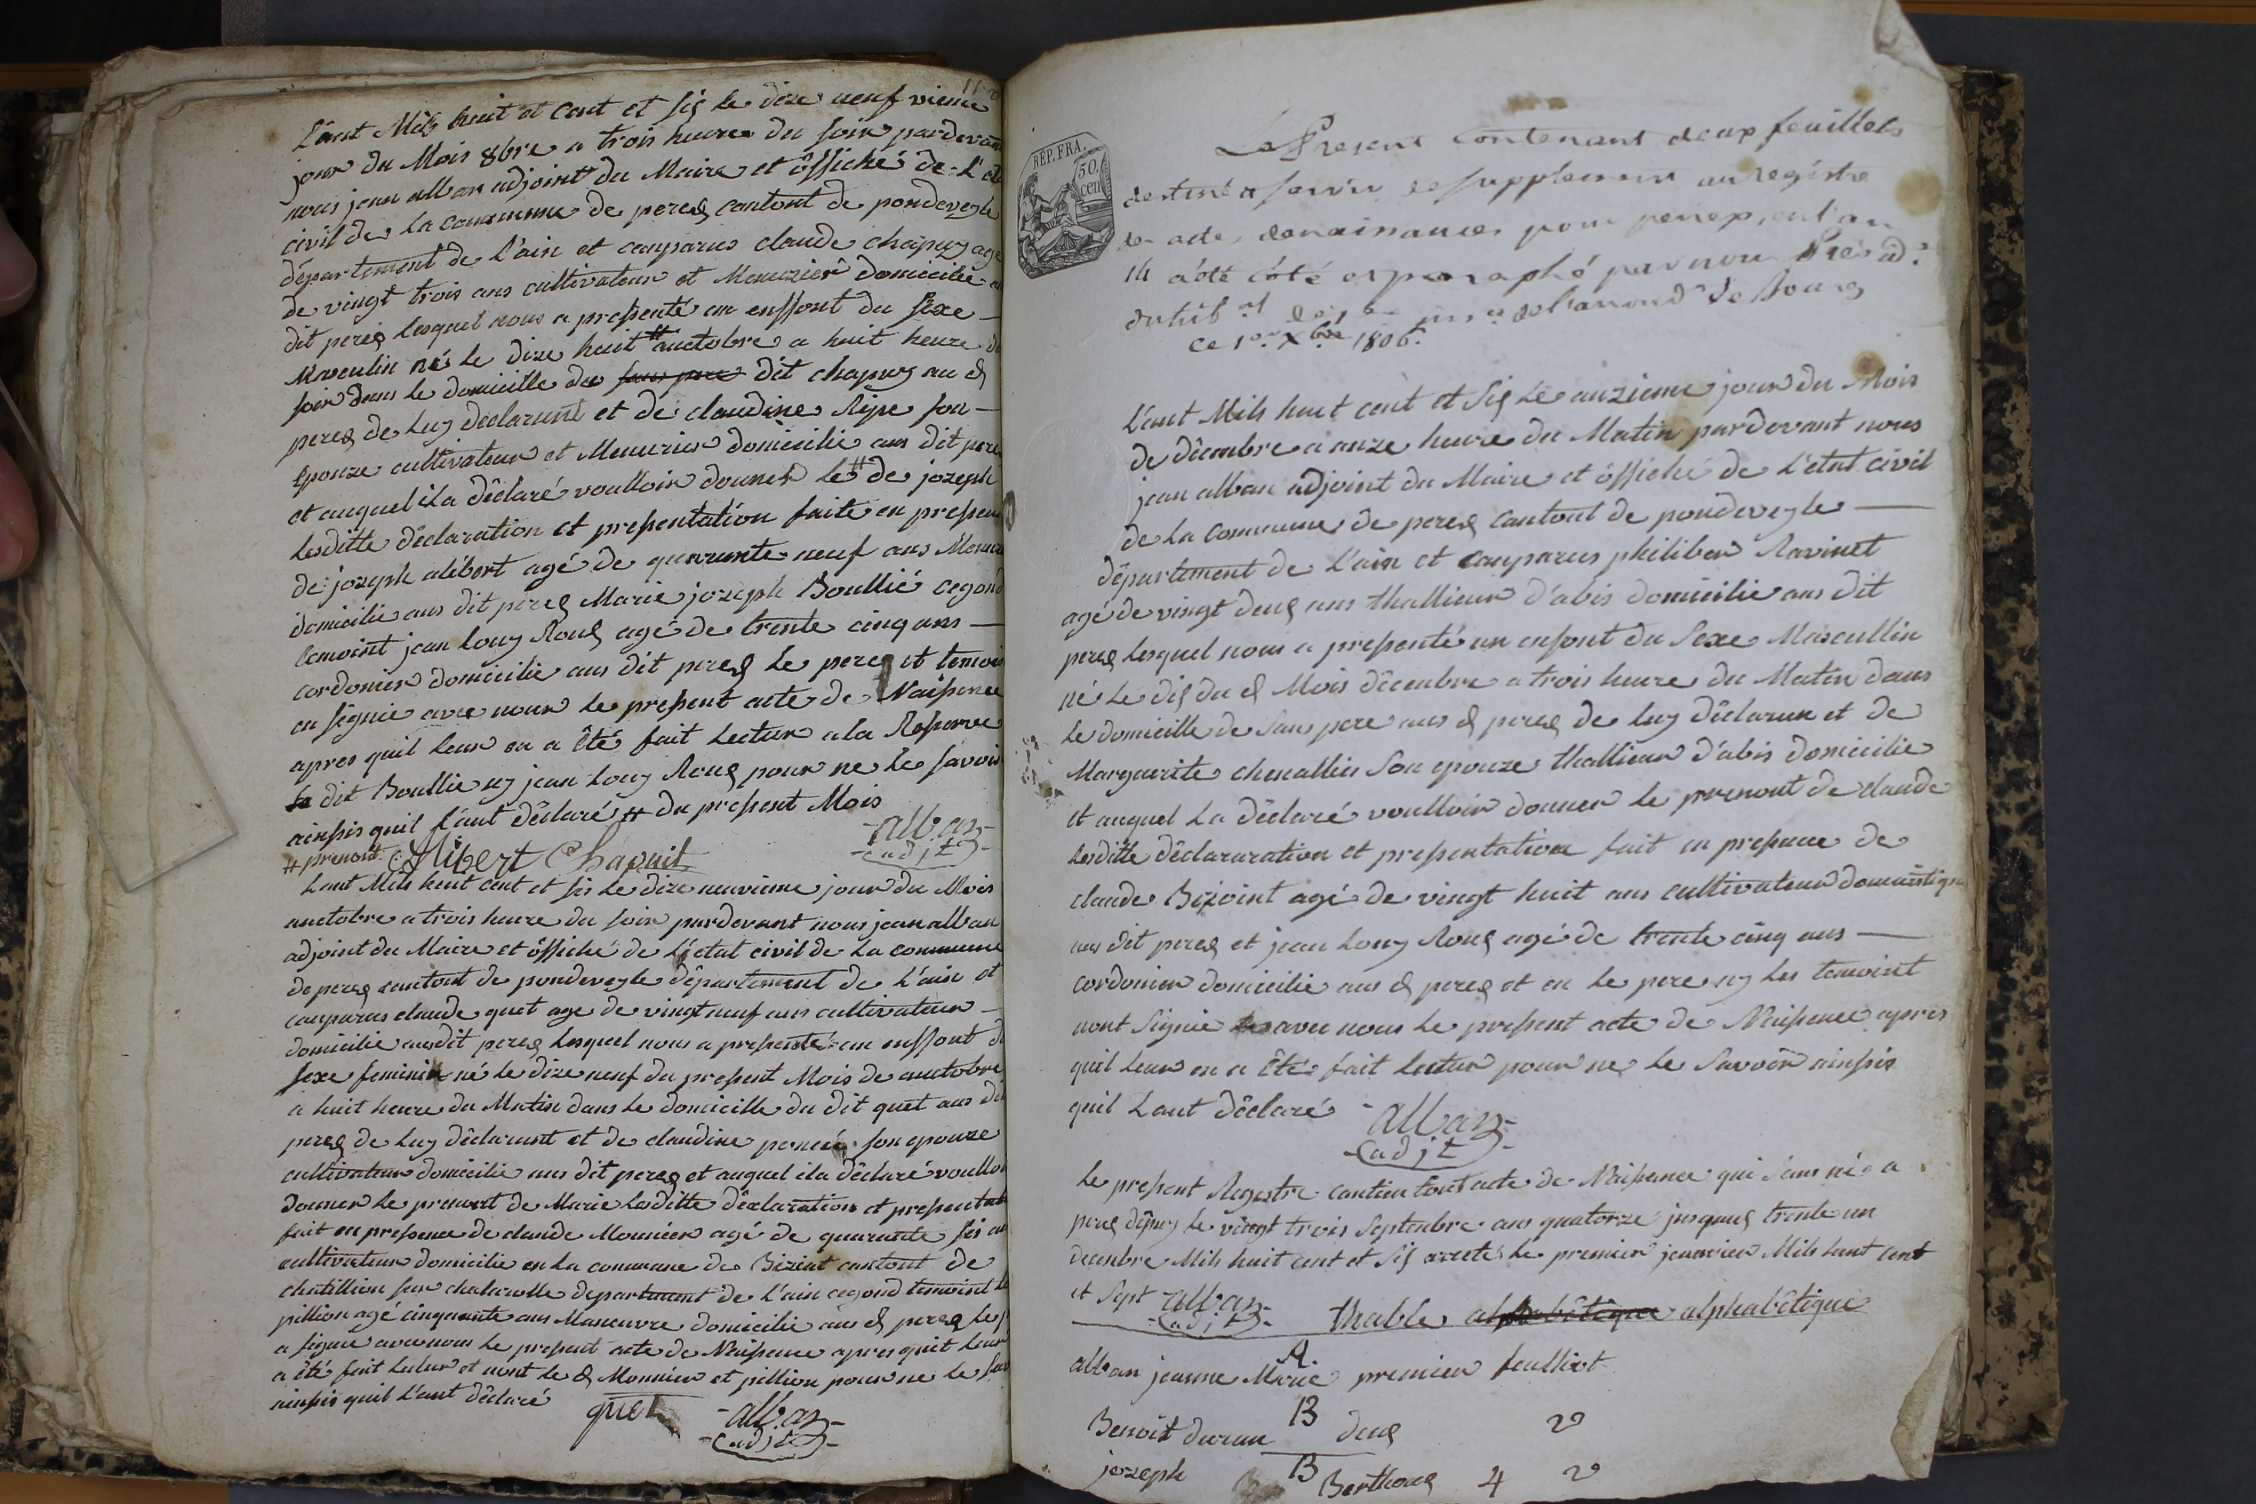 L'ant Mils huit et Cent et six le dixe neuf vieme
jour du Mois 8bre a trois heure du soir pardevant
nous jean alban adjoint du Maire et ôffiché de L'etat
civil de La commune de pereq cantont de pondeveyle
département de L'ain et comparus claude chapuy agé
de vingt trois ans cultivateur et Menuzier domicilie au
dit pereq Lesquel nous a presenté un enffont du sexe
Masculin né le dixe huit # auctobre a huit heure du
soir dans le domicille du sans pere dit chapuy au d
pereq de Luy declarant et de claudine Ripe son
epouze cultivateur et Menurier domicilie aus dit pereq
et auquel ila dêclaré voulloir donner le # de jozeph
Lesditte dêclaration et presentation faite en presence
de jozeph alibert agé de quarante neuf ans
domicilie aus dit pereq Marie jozeph Boullié cegond
temoint jean Louy Rouq agé de trente cinq ans
cordonier domicilie aus dit pereq le pereq et temoin
on signié avec nous le present acte de Naissence
apres quil leur en a êté fait Lectur a la Reserve
dit Boullie ny jean Louy Rouq pour ne le savoir
ainssis quil L'ant dêclaré # du present Mois
# prenont Alibert Chapuit alban
adjt
Lant Mils huit cent et sis le dixe neuvieme jour du Mois
auctobre a trois heure du soir pardevant nous jean alban
adjoint du Maire et ôffiché de L'êtat civil de La commune
de pereq cantont de pondeveyle département de L'ain et
comparus claude quet age de vingt neuf ans cultivateur
domicilie ausdit pereq Lesquel nous a presenté un enffont du
sexe feminin né le dixe neuf du present Mois de auctobre
a huit heure du Matin dans le domicille du dit quet aus dit
pereq de Luy dêclarant et de claudine son epouze
cultivateur domicilie aus dit pereq et auquel ila dêclaré voulloir
donner le prenont de Marie Lesditte dêclaration et presentation
fait en presence de claude Monnier agé de quarante sis ans
cultivateur domicilie en La commune de Biziat cantont de
chatillion sur chalarolle departement de L'ain cegond temoint
pillion agé cinquante ans Maneuvre domicilie aus d pereq
a signié avec nous le present acte de Naissence apres quil leur
a êté fait Lectur et nont le d Monnier et pillion pour ne le
ainssis quil L'ant dêclaré quet alban
adjt
REP. FRA.
50.
cen
Le Present contenant deux feuillets
destiné a servir de supplement au registre
des actes de naissances pour perrex, en l'an
14 a été côté et paraphé par nous
ce 1er Xbre 1806.
L'ant Mils huit cent et six le auzieme jour du Mois
de dêcembre a auze heure du Matin pardevant nous
jean alban adjoint du Maire et ôffiché de L'êtat civil
de La commune de pereq cantont de pondeveyle
département de L'ain et comparus philiber Ravinet
agé de vingt deuq ans thallieur d'abis domicilie aus dit
pereq Lesquel nous a presenté un enffont du Sexe Mascullin
né Le dis du d Mois dêcembre a trois heure du Matin dans
Le domicille de Sans pere aus d pereq de luy dêclarun et de
Marguerite chevallier Son epouze thallieur d'abis domicilie
et auquel La dêclaré voulloir donner le prenont de claude
Lesditte dêclararation et presentation fait en presence de
claude Bizoint agé de vingt huit ans cultivateur domaistique
aus dit pereq et jean Louy Rouq agé de trente cinq ans
cordonier domicilie aus d pereq et en le pere ny les temoint
nont Signié avec nous le present acte de Naissence apres
quil leur en a êté fait lectur pour ne le Savoir ainssis
quil Lant dêclaré alban
adjt
Le present Registre contien tout acte de Naissance qui Sans né a
pereq dêpuy le vingt trois Septenbre ans quatorze jusques trente un
decenbre Mils huit cent et Six arreté le premier jeanvier Mils huit cent
et Sept alban
adjt
thable alphabêtique alphabêtique
A.
alban jeanne Marie premier feulliet
B
Benoit duran deuq 2
B
jozeph Berthouq 4 2